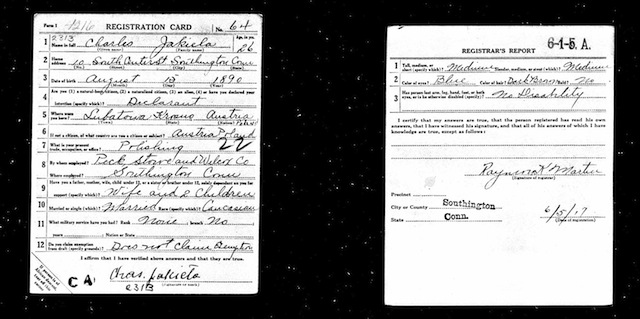 Form 1 1216 REGISTRATION CARD No. 64
2313
1 Name in full Charles Jakiela Age, in yrs. 26
(Given name) (Family name)
2 Home address 10 South Center St Southington Conn
(No.) (Street) (City) (State)
3 Date of birth August 15 1890
(Month) (Day) (Year)
4 Are you (1) a natural-born citizen, (2) a naturalized citizen, (3) an alien, (4) or have you declared your
intention (specify which)? Declarant
5 Where were you born? Lubatowa Krosno Austria
(Town) (State) (Nation)
6 If not a citizen, of what country are you a citizen or subject? Austria Poland
7 What is your present
trade, occupation, or office? Polishing 22
8 By whom employed? Peck Stowe and Wilcox Co
Where employed? Southington Conn
9 Have you a father, mother, wife, child under 12, or a sister or brother under 12, solely dependent on you for
support (specify which)? Wife and 2 Children
10 Married or single (which)? Married Race (specify which)? Caucasian
11 What military service have you had? Rank None branch No
years Nation or State
12 Do you claim exemption
from draft (specify grounds)? Does not Claim Exemption
I affirm that I have verified above answers and that they are true.
C A Chas. Jakiela
2313 (Signature or mark)
REGISTRAR'S REPORT 6-1-5. A.
1 Tall, medium, or
short (specify which)? Medium Slender, medium, or stout (which)? Medium
2 Color of eyes? Blue Color of hair? Dark Brown Bald? No
3 Has person lost arm, leg, hand, foot, or both
eyes, or is he otherwise disabled (specify)? No Disability
I certify that my answers are true, that the person registered has read his own
answers, that I have witnessed his signature, and that all of his answers of which I have
knowledge are true, except as follows:
Raymond K Martin
(Signature of registrar)
Precinct
City or County Southington
State Conn. 6/5/17
(Date of registration)